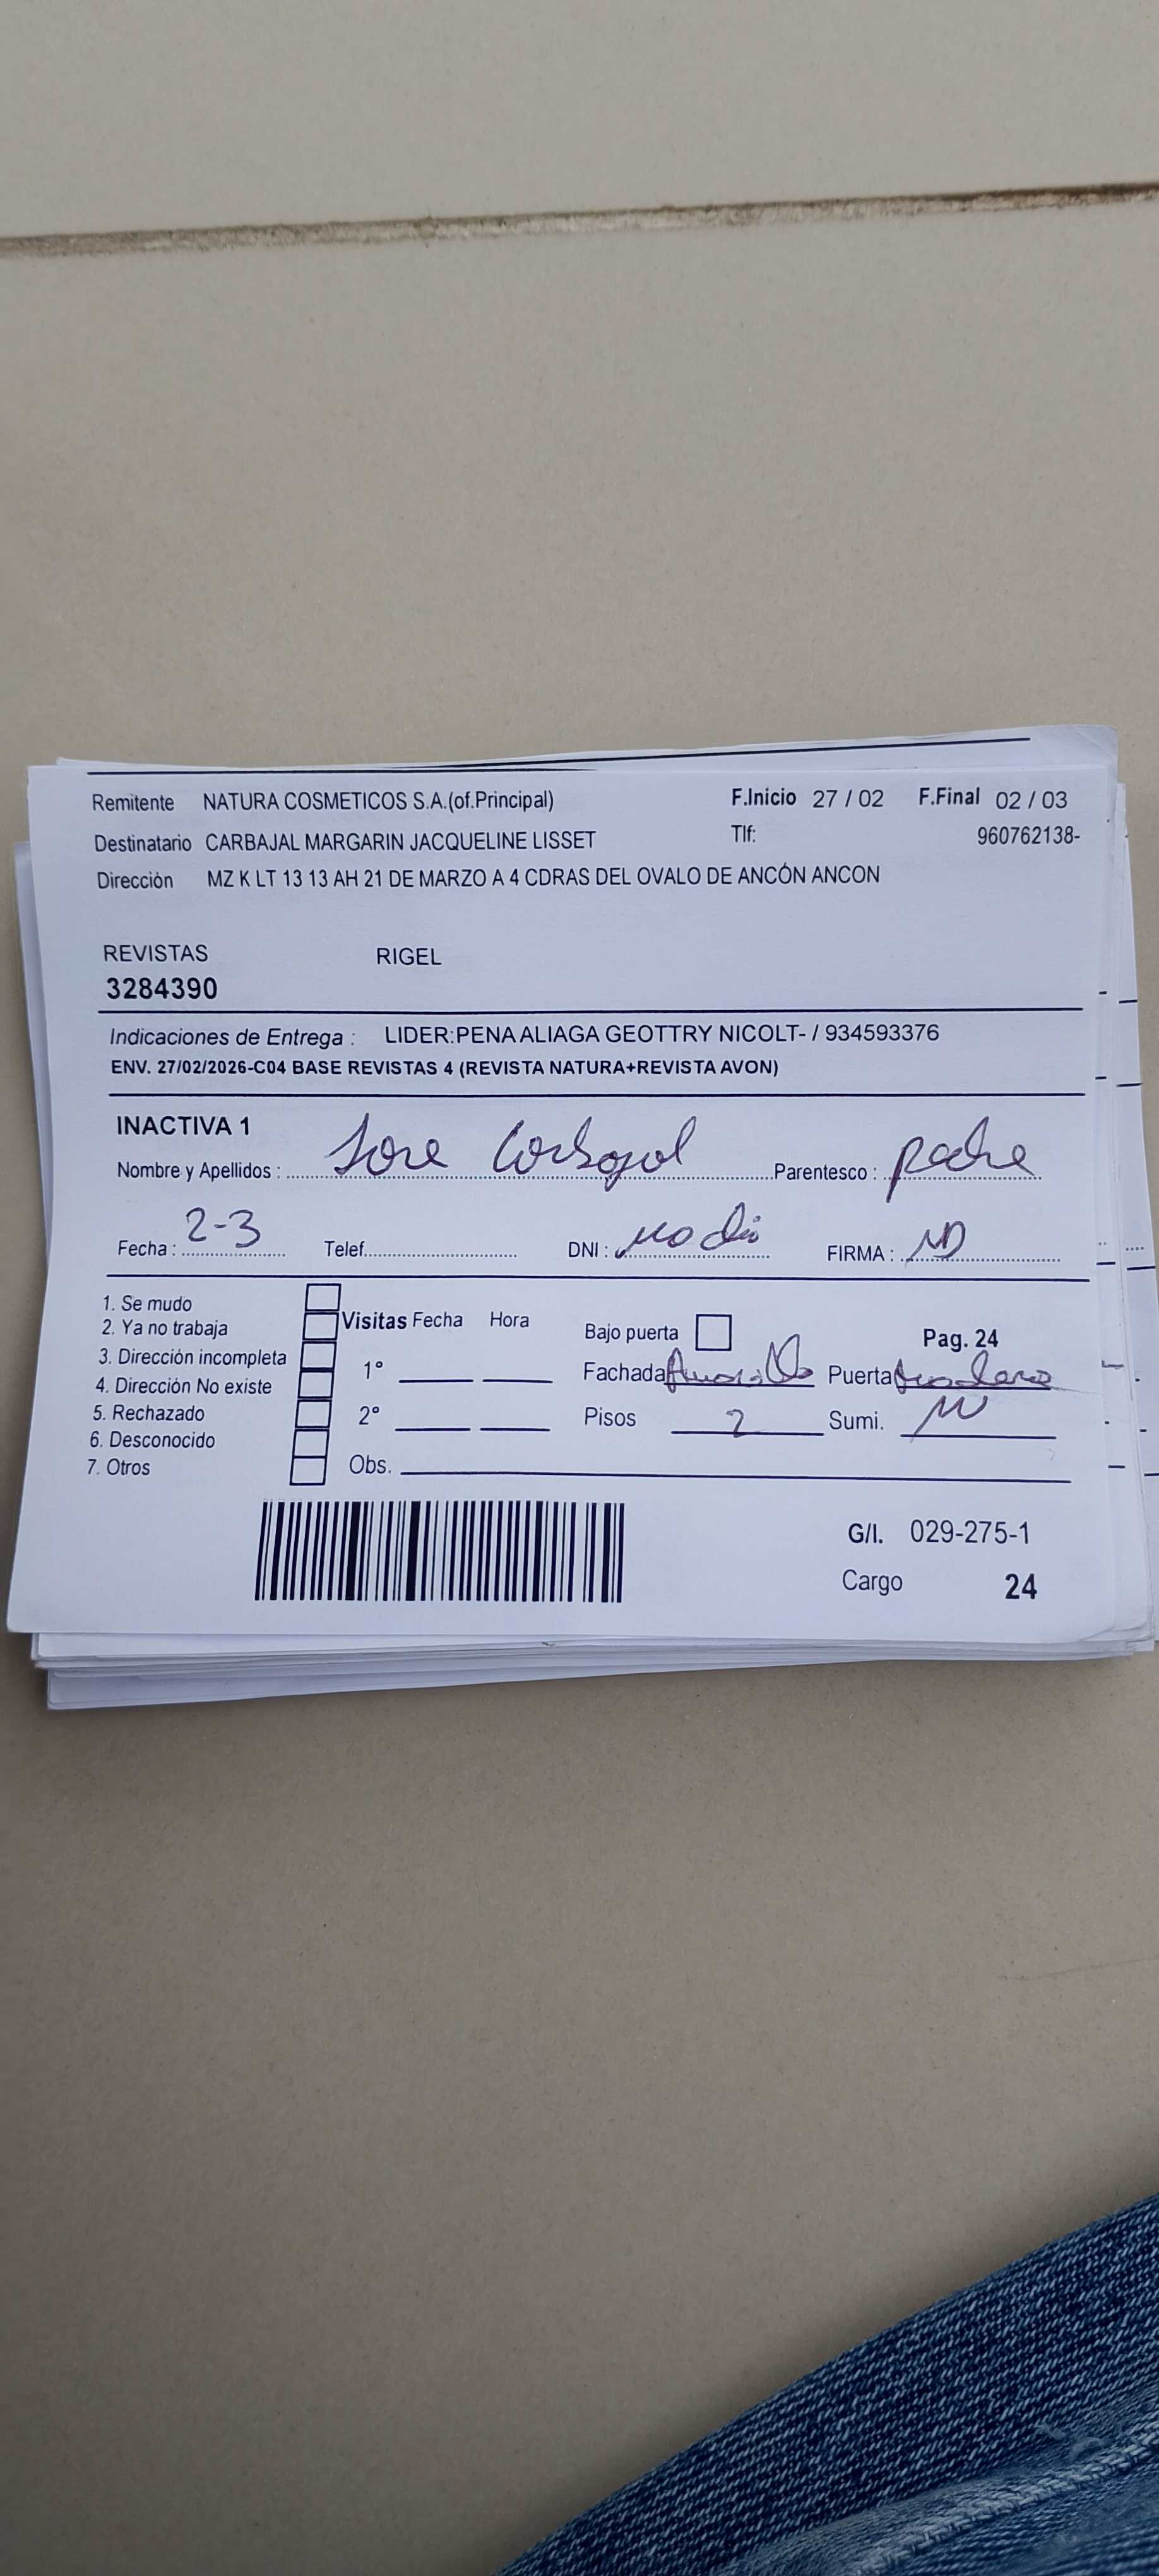 Remitente NATURA COSMETICOS S.A.(of.Principal) F.Inicio 27 / 02 F.Final 02 / 03
Destinatario CARBAJAL MARGARIN JACQUELINE LISSET Tlf: 960762138-
Dirección MZ K LT 13 13 AH 21 DE MARZO A 4 CDRAS DEL OVALO DE ANCÓN ANCON
REVISTAS RIGEL
3284390
Indicaciones de Entrega : LIDER:PENA ALIAGA GEOTTRY NICOLT- / 934593376
ENV. 27/02/2026-C04 BASE REVISTAS 4 (REVISTA NATURA+REVISTA AVON)
INACTIVA 1
Nombre y Apellidos : Jose Carbajal Parentesco : padre
Fecha : 2-3 Telef. DNI : no dio FIRMA : ND
1. Se mudo
2. Ya no trabaja Visitas Fecha Hora Bajo puerta Pag. 24
3. Dirección incompleta 1° Fachada Amarillo Puerta
4. Dirección No existe
5. Rechazado 2° Pisos 2 Sumi.
6. Desconocido
7. Otros Obs.
G/I. 029-275-1
Cargo 24